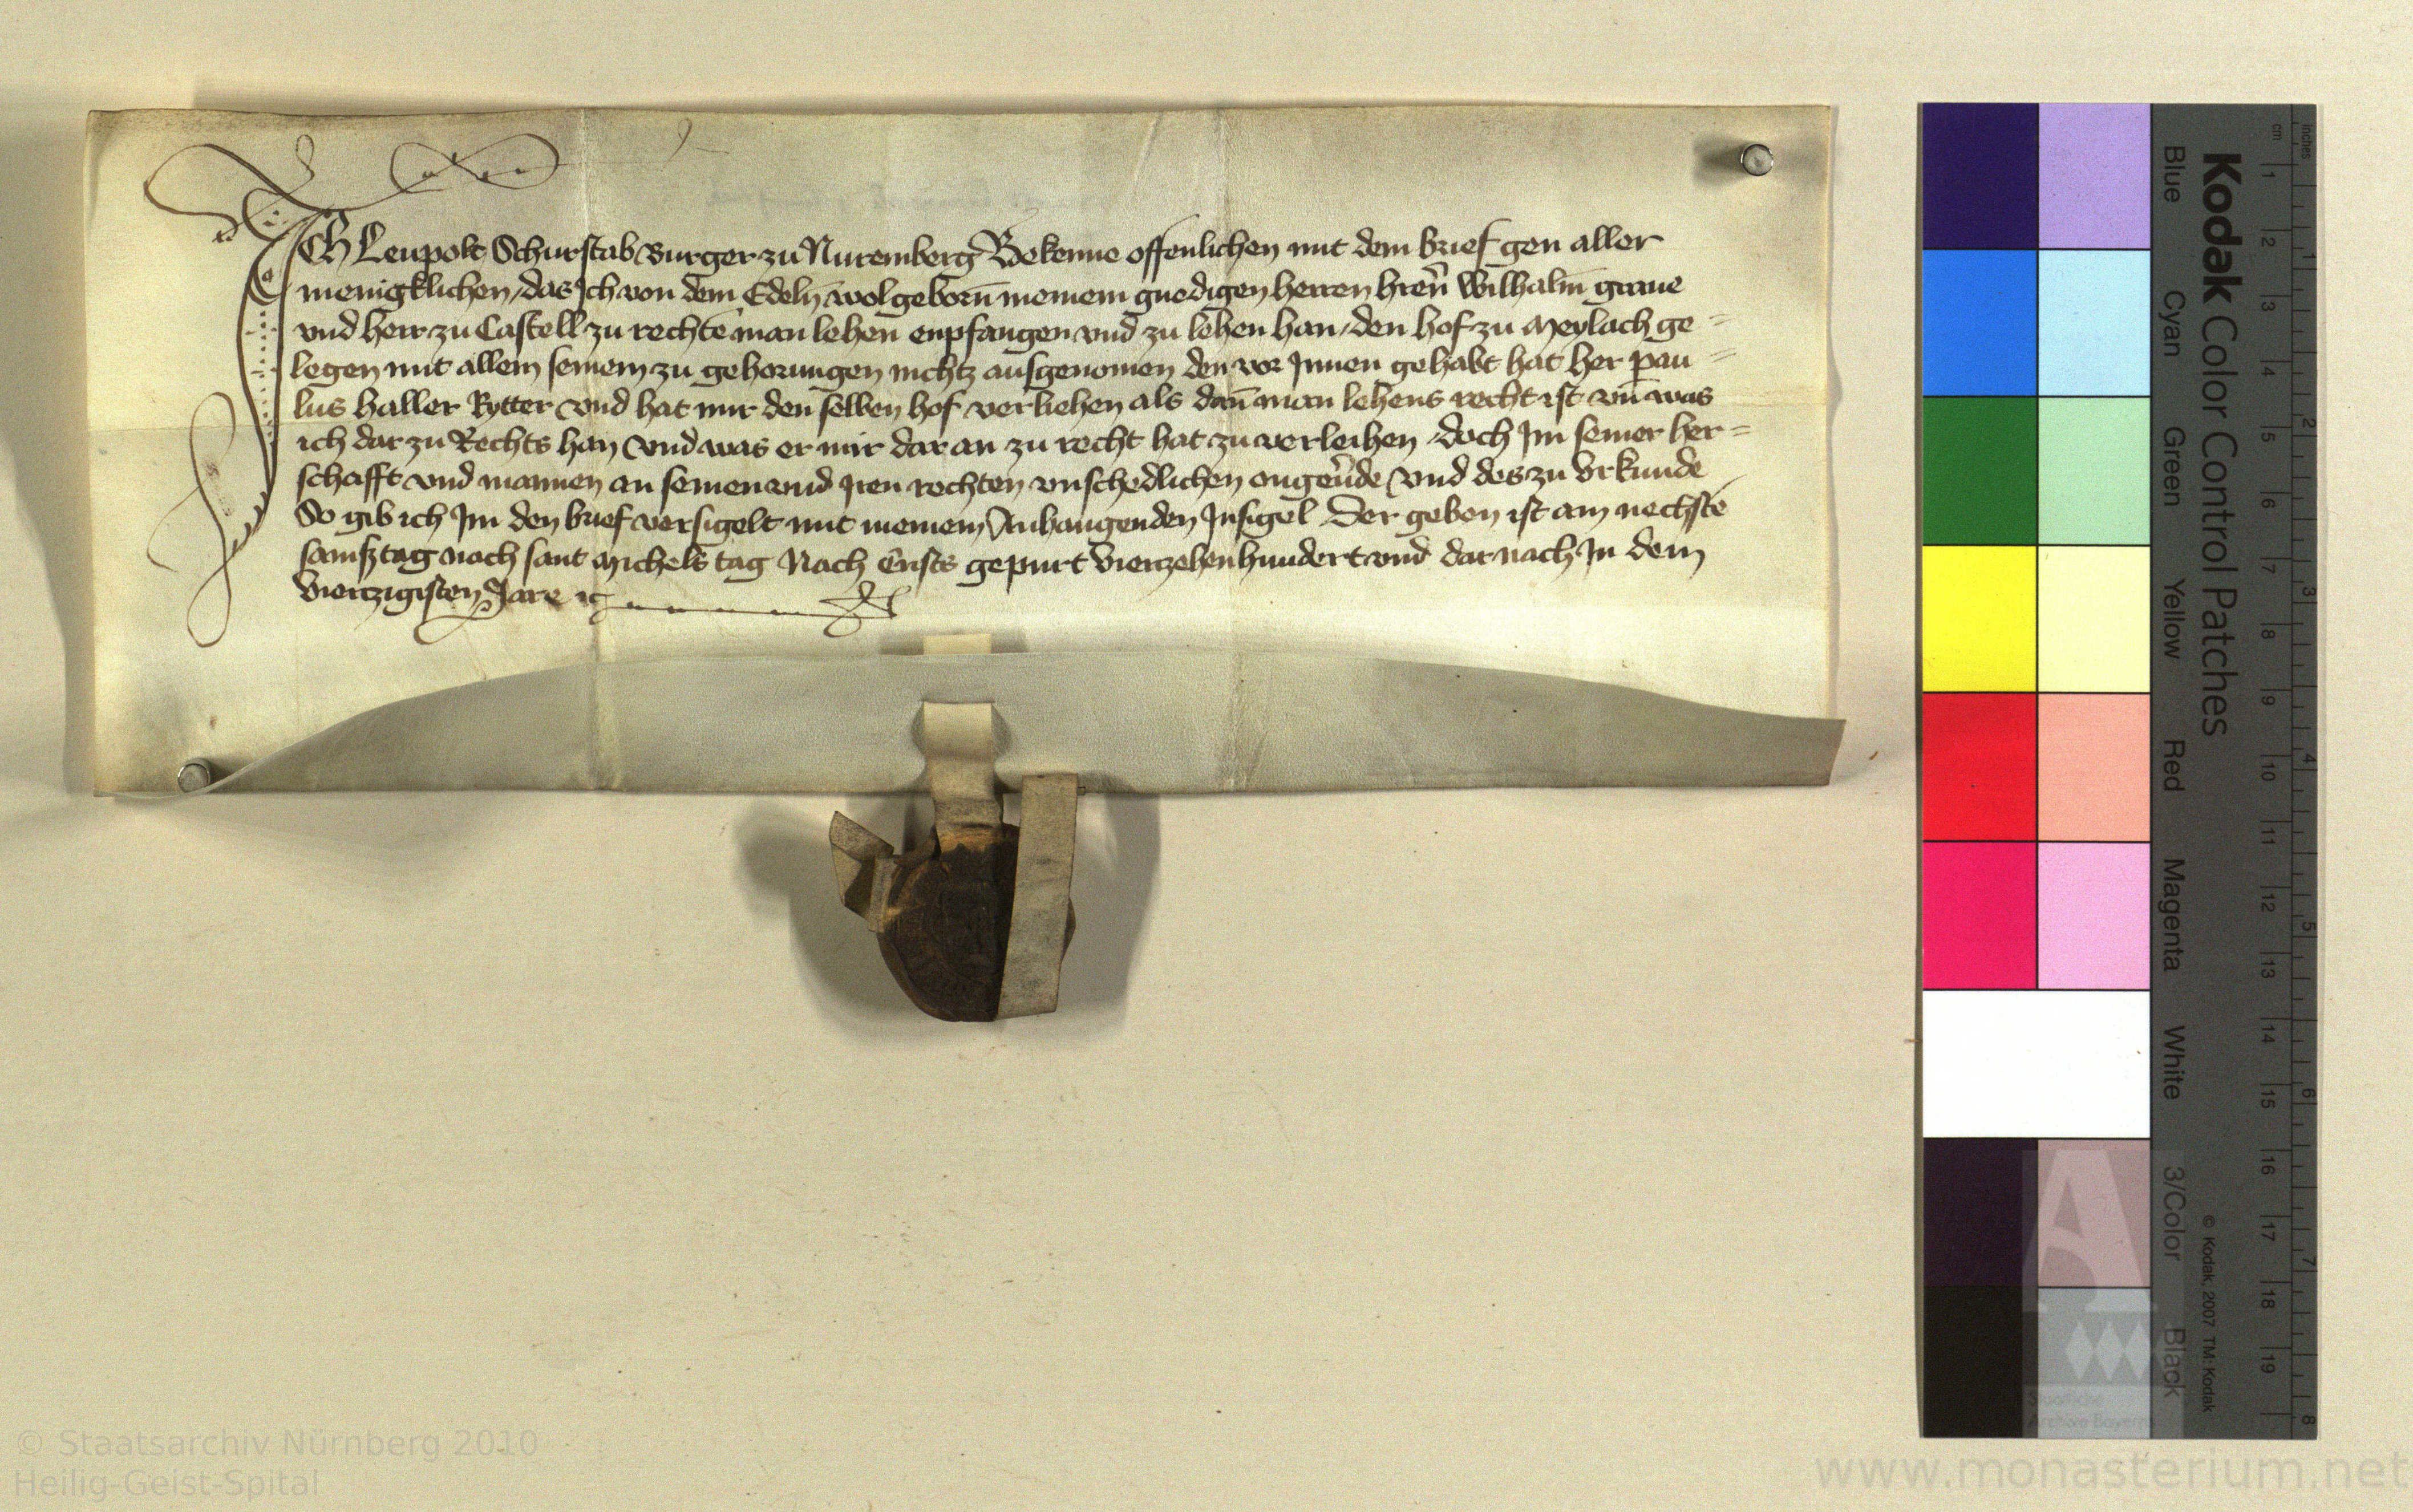 ICh Leupolt Schurstab Burger zu Nuremberg Bekenne offenlichen mit dem brief gen aller
menigklichen, das Ich von dem Edeln̄ wolgeborn̄ meinem gnedigen herren hren̄ Wilhalm̄ graue
vnd herr zu Castell zu rechtē man lehen enpfangen vnd zu lehen han, den hof zu Meylach ge=
legen mit allem seinem zu gehorungen nichtz ausgenomen den vor Innen gehabt hat her pau=
lus haller Rytter vnd hat mir den selben hof verliehen als dan̄ man lehens recht ist vn̄ was
ich dar zu Rechts han vnd was er mir dar an zu recht hat zu verleihen, doch Im seiner her=
schafft vnd mannen an seinen vnd Iren rechten vnschedlichen ongeu̾de Vnd des zu Vrkunde
So gib ich Im den brief versigelt mit meinem Anhangenden Insigel Der geben ist am nechstē
samsztag nach sant Michels tag Nach Crists gepurt Vierzehenhundert vnd dar nach In dem
Viertzigisten Jare ꝛc
Kodak Color Control Patches
Blue Cyan Green Yellow Red Magenta White 3/Color Black
© Kodak, 2007 TM: Kodak
cm 1 2 3 4 5 6 7 8 9 10 11 12 13 14 15 16 17 18 19
inches 1 2 3 4 5 6 7 8
Staatliche
Archive Bayerns
© Staatsarchiv Nürnberg 2010
Heilig-Geist-Spital
www.monasterium.net